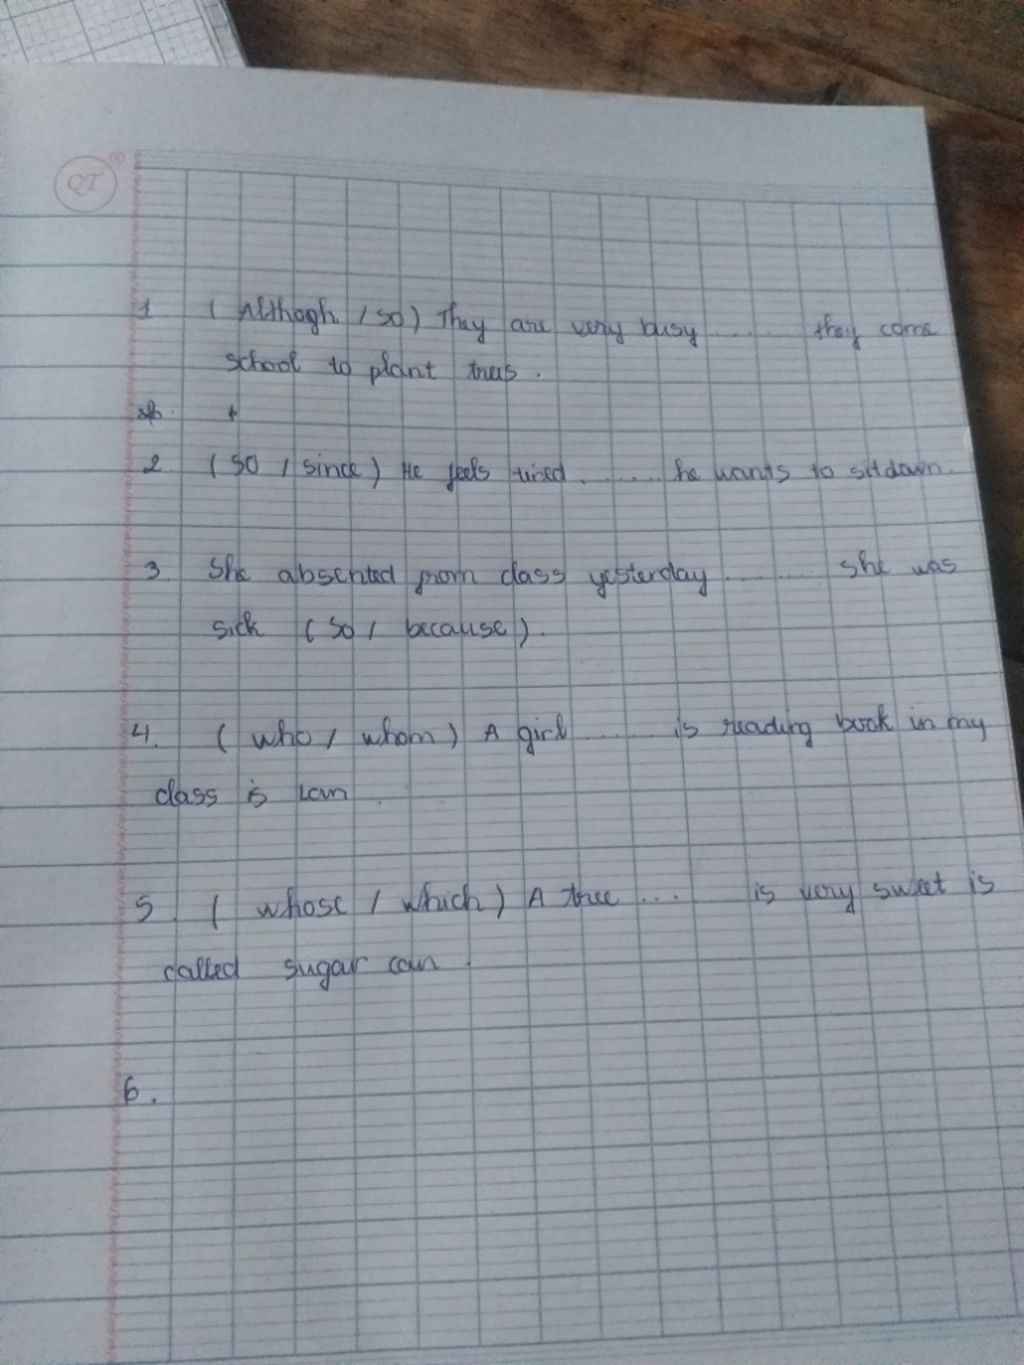 QT
1 ( Althogh / so ) They are very busy ...... they come
school to plant trees .
2 ( so / since ) He feels tired ....... he wants to sitdown.
3 She absented from class yesterday ......... she was
sick ( so / because ).
4. ( who / whom ) A girl ...... is reading book in my
class is Lan .
5 . ( whose / which ) A tree .... is very sweet is
called sugar can .
6 .